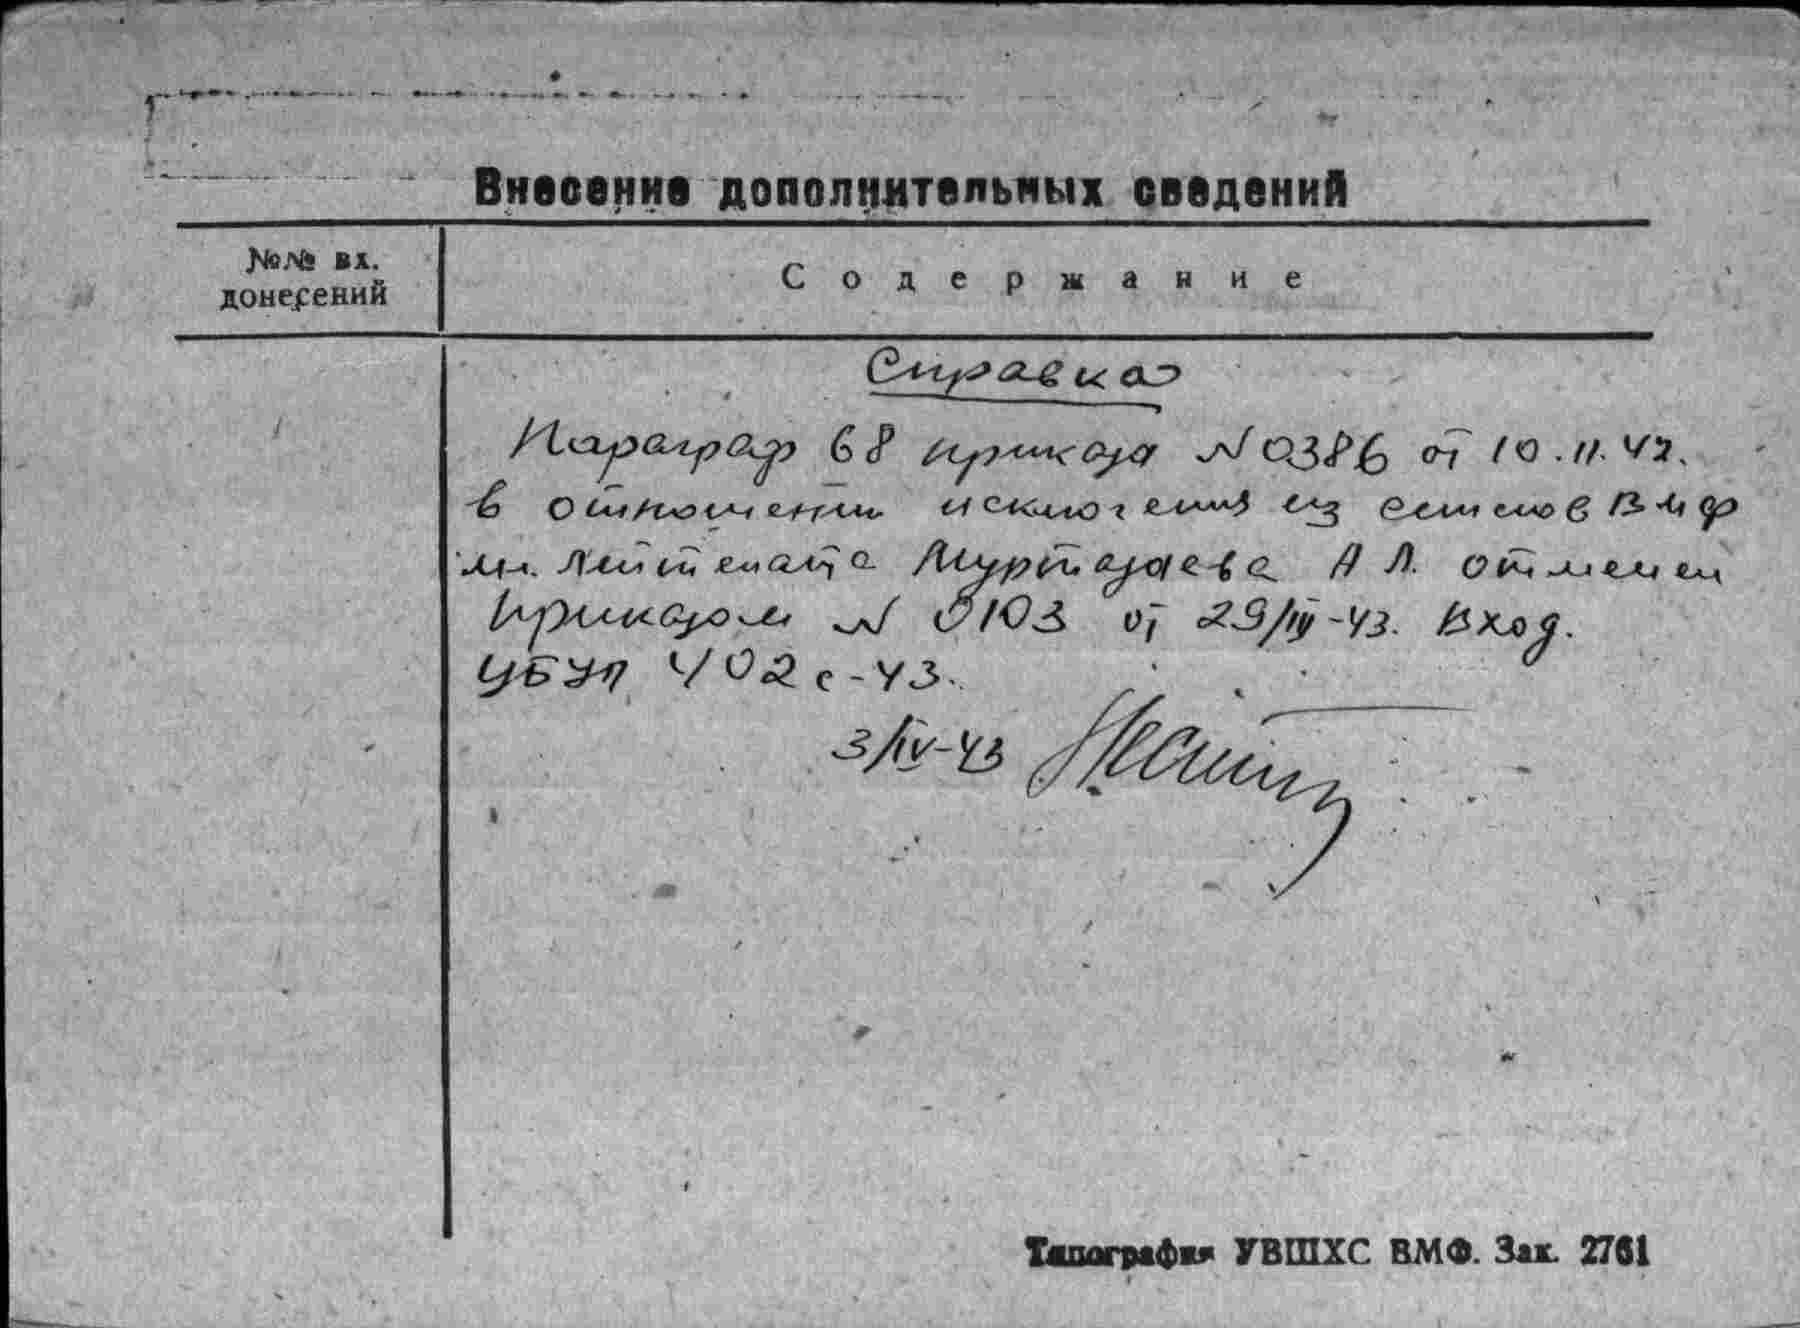 Внесение дополнительных сведений
№№ вх.
донесений
Содержание
Справка
Параграф 68 приказа № 0386 от 10.11.42.
в отношении исключения из списков ВМФ
мл. лейтенанта Муртазаева А Л. отменен
Приказом № 0103 от 29/III-43. Вход.
УБУП 402с-43.
3/IV-43
Типография УВШХС ВМФ. Зак. 2761